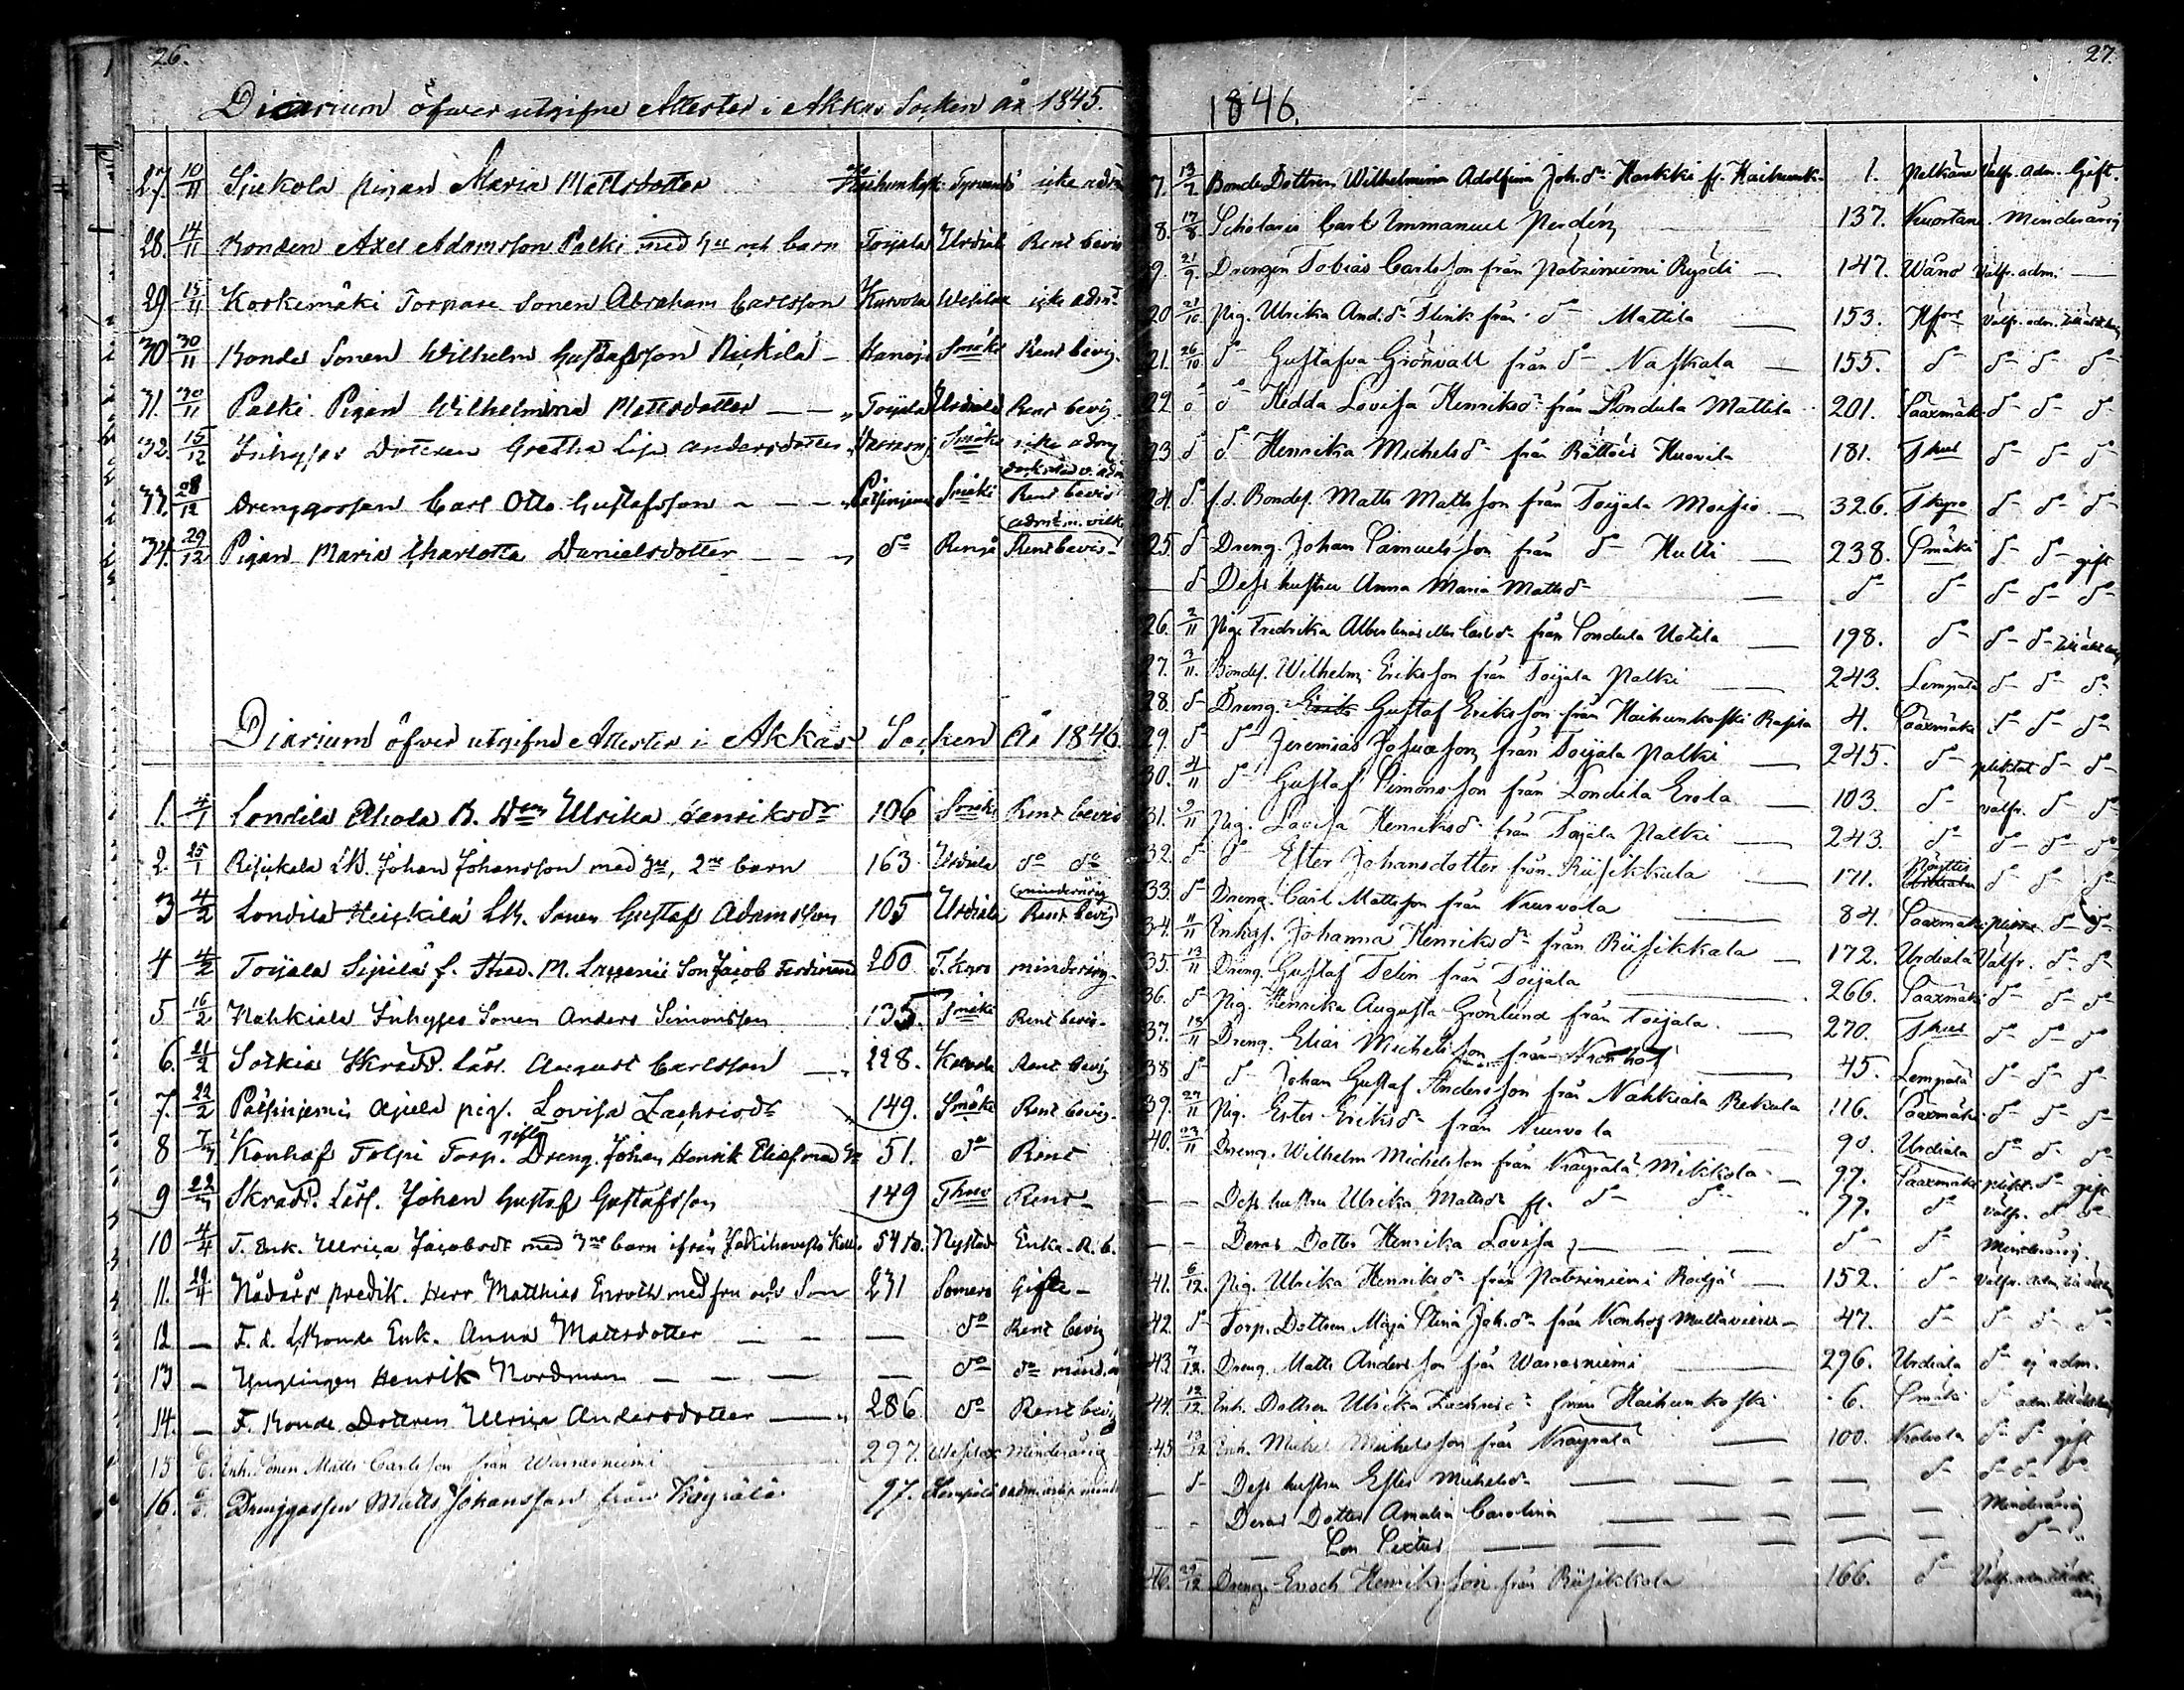 26.
Diarium öfwer utgifne Attester i Akkas Socken år 1845.
27. 10/11 Sjukola pigan Maria Mattsdotter Kaihunkoski Tyrvändö icke adm
28. 14/11 Bonden Axel Adamsson Palki med h:u och barn Toijala Urdiala Rent bevis
29 15/11 Koskemäki Torpare Sonen Abraham Carlsson Kurvola Wesilax icke adm:t
30 30/11 Bonde Sonen Wilhelm Gustafsson Nickilä Smäki Rent bevis.
31. 30/11 Palki Pigan Wilhelmina Mattsdotter — — „ Toijala Urdiala Rent bevis.
32. 15/12 Inhyses Dotteren Gretha Lisa andersdotter Smäki icke admi
33. 28/12 Drenggossen Carl Otto Gustafsson Smäki Rent bevis
34. 29/12 Pigan Maria Charlotta Danielsdotter — — „ d:o Rengå Rent bevis
Diarium öfwer utgifne Attester i Akkas Socken År 1846.
1. 4/1 Londila Ahola B. Ulrika Henriksd:r 106 Smäki Rent bevis
2. 25/1 Risikala Johan Johansson med h:u, 2:ne barn 163 Urdiala d:o d:o
3 4/2 Londila Heickilä Lb. Sonen Gustaf Adamsson 105 Urdiala (minderårig Rent bevis
4 4/2 Toijala Sipilä f. M. Son Jacob Ferdinand 200 T.kyro minderårig.
5 16/2 Nahkiala Inhyses Sonen Anders Simonsson 135. Smäki Rent bevis.
6. 21/2 Sotkia Skrädd. Lärl. August Carlsson 228. Rent bevis
7. 22/2 Palsinjemi Ajula pig. Lovisa Zachrisd:r 149. Smäki Rent bevis.
8 Konhof Tolpi Torp. Dreng. Johan Henrik med 51. d:o Rent
9 Skrädd. Lärl. Johan Gustaf Gustafsson 149 Thus Rent
10 4/4 T. Enk. Ulrica Jacobsd:r med 3:ne barn ifrån Nystad Enka R. b.
11. 29/4 Nådårs predik. Herr Matthias med fru och Son 231 Somero Gifte
12 — F. d. Bonde Enk. Anna Mattsdotter — — — d:o Rent bevis
13 — Ynglingen Henrik Nordman — — — d:o d:o mind.
14. — F. Bonde Dottren Ulrica Andersdotter — „ 286 d:o Rent bevis
15 Inh. Sonen Matts Carlsson från Warrasniemi 297. Wesilax Minderårig
16. Drenggossen Matts Johansson från Krägrälä 97. Lempälä
27.
1846.
7. 13/7 Bonde Dottren Wilhelmina Adolfina Joh.d:r Harkki fr. Kaihunk. 1. Pelkäne Välfr. adm. Gift.
8. 17/8. Scholaris Carl Immanuel Perdén 137. Kuortane. Minderårig
9. 21/9. Drengen Tobias Carlsson från Patziniemi 147. Wånå Välfr. adm. —
20. 21/10. Pig. Ulrika And.d:r Flink från d:o Mattila — 153. Hfors Välfr. adm.
21. 26/10 d:o Gustafva Grönvall från d:o Naskala — 155. d:o d:o d:o d:o
22 d:o d:o Hedda Lovisa Henriksd:r från Sondula Mattila 201. Saaxmäki d:o d:o d:o
23 d:o d:o Henrika Michelsd:r från Rättöis 181. Thus d:o d:o d:o
24. d:o f.d. Bondes. Matts Mattsson från Toijala Moisio 326. Tkyro d:o d:o d:o
25 d:o Dreng. Johan Samuelsson från d:o Hulli — 238. Smäki d:o d:o gift
— d:o Dess hustru Anna Maria Mattsd:r — d:o d:o d:o d:o d:o
26. 2/11 Pig. Fredrika Albertina eller Carlsd:r från Sondula Uotila — 198. d:o d:o d:o
27. 3/11. Bondes. Wilhelm Eriksson från Toijala Palki — 243. Lempälä d:o d:o d:o
28. d:o Dreng. Gustaf Eriksson från Kaihunkoski 4. Saaxmäki d:o d:o d:o
29. d:o d:o Jeremias Josuasson från Toijala Palki — 245. d:o d:o d:o
30. 4/11 d:o Gustaf Simonsson från Londila Erola 103. d:o välfr. d:o d:o
31. 5/11 Pig. Lovisa Henriksd:r från Toijala Palki — 243. d:o d:o d:o d:o
32. d:o d:o Ester Johansdotter från Riisikkala — 171. d:o d:o d:o
33. d:o Dreng. Carl Mattsson från Kurvola — 84. Saaxmäki d:o d:o
34. 11/11 Inhys. Johanna Henriksd:r från Riisikkala — 172. Urdiala Välfr. d:o d:o
35. 13/11 Dreng. Gustaf Felin från Toijala — 266. Saaxmäki d:o d:o d:o
36. d:o Pig. Henrika Augusta Grönlund från Toijala. — 270. Thus d:o d:o d:o
37. 18/11 Dreng. Elias Michelsson från Konhof — 45. Lempälä d:o d:o d:o
38 d:o d:o Johan Gustaf Andersson från Nahkiala Rekola 116. Saaxmäki d:o d:o d:o
39. Pig. Ester Eriksd:r från Kurvola 90. Urdiala d:o d:o d:o
40. 23/11 Dreng. Wilhelm Michelsson från Krägrälä Mikkola — 97. Saaxmäki d:o gift
— — Dess hustru Ulrika Mattsd:r fr. d:o d:o 97. d:o Välfr. d:o d:o
— — Deras Dotter Henrika Lovisa — — d:o d:o Minderårig.
41. 6/12. Pig. Ulrika Henriksd:r från Patziniemi — 152. d:o Välfr. adm.
42. d:o Torp. Dottren Maja Stina Joh.d:r från Konhof 47. d:o d:o d:o d:o
43. 7/12. Dreng. Matts Andersson från Warrasniemi — 296. Urdiala d:o ej adm.
44. 12/12 Inh. Dottren Ulrika Zachrisd:r från Kaihunkoski 6. Smäki d:o adm.
45. 13/12 Inh. Michel Michelsson från Krägrälä — 100. d:o d:o gift
— d:o Dess hustru Ester Michelsd:r — — — d:o d:o d:o d:o
— — Deras Dotter Amalia Carolina — — — Minderårig
— Son Sixtus — — — d:o
46. 29/12 Dreng. Enoch Henriksson från Riisikkala 166. d:o Välfr. adm.